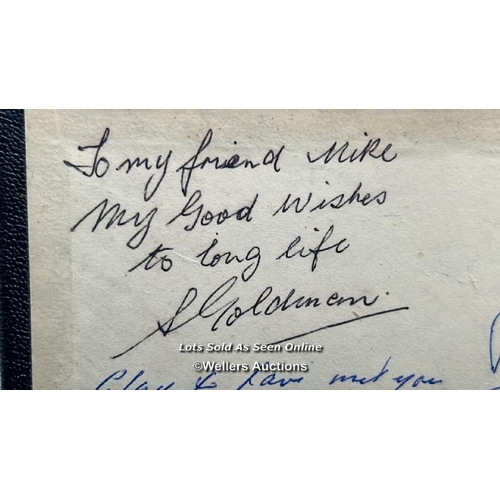 To my friend Mike
My Good Wishes
to long life
S Goldman.
Lots Sold As Seen Online
©Wellers Auctions
to have met you